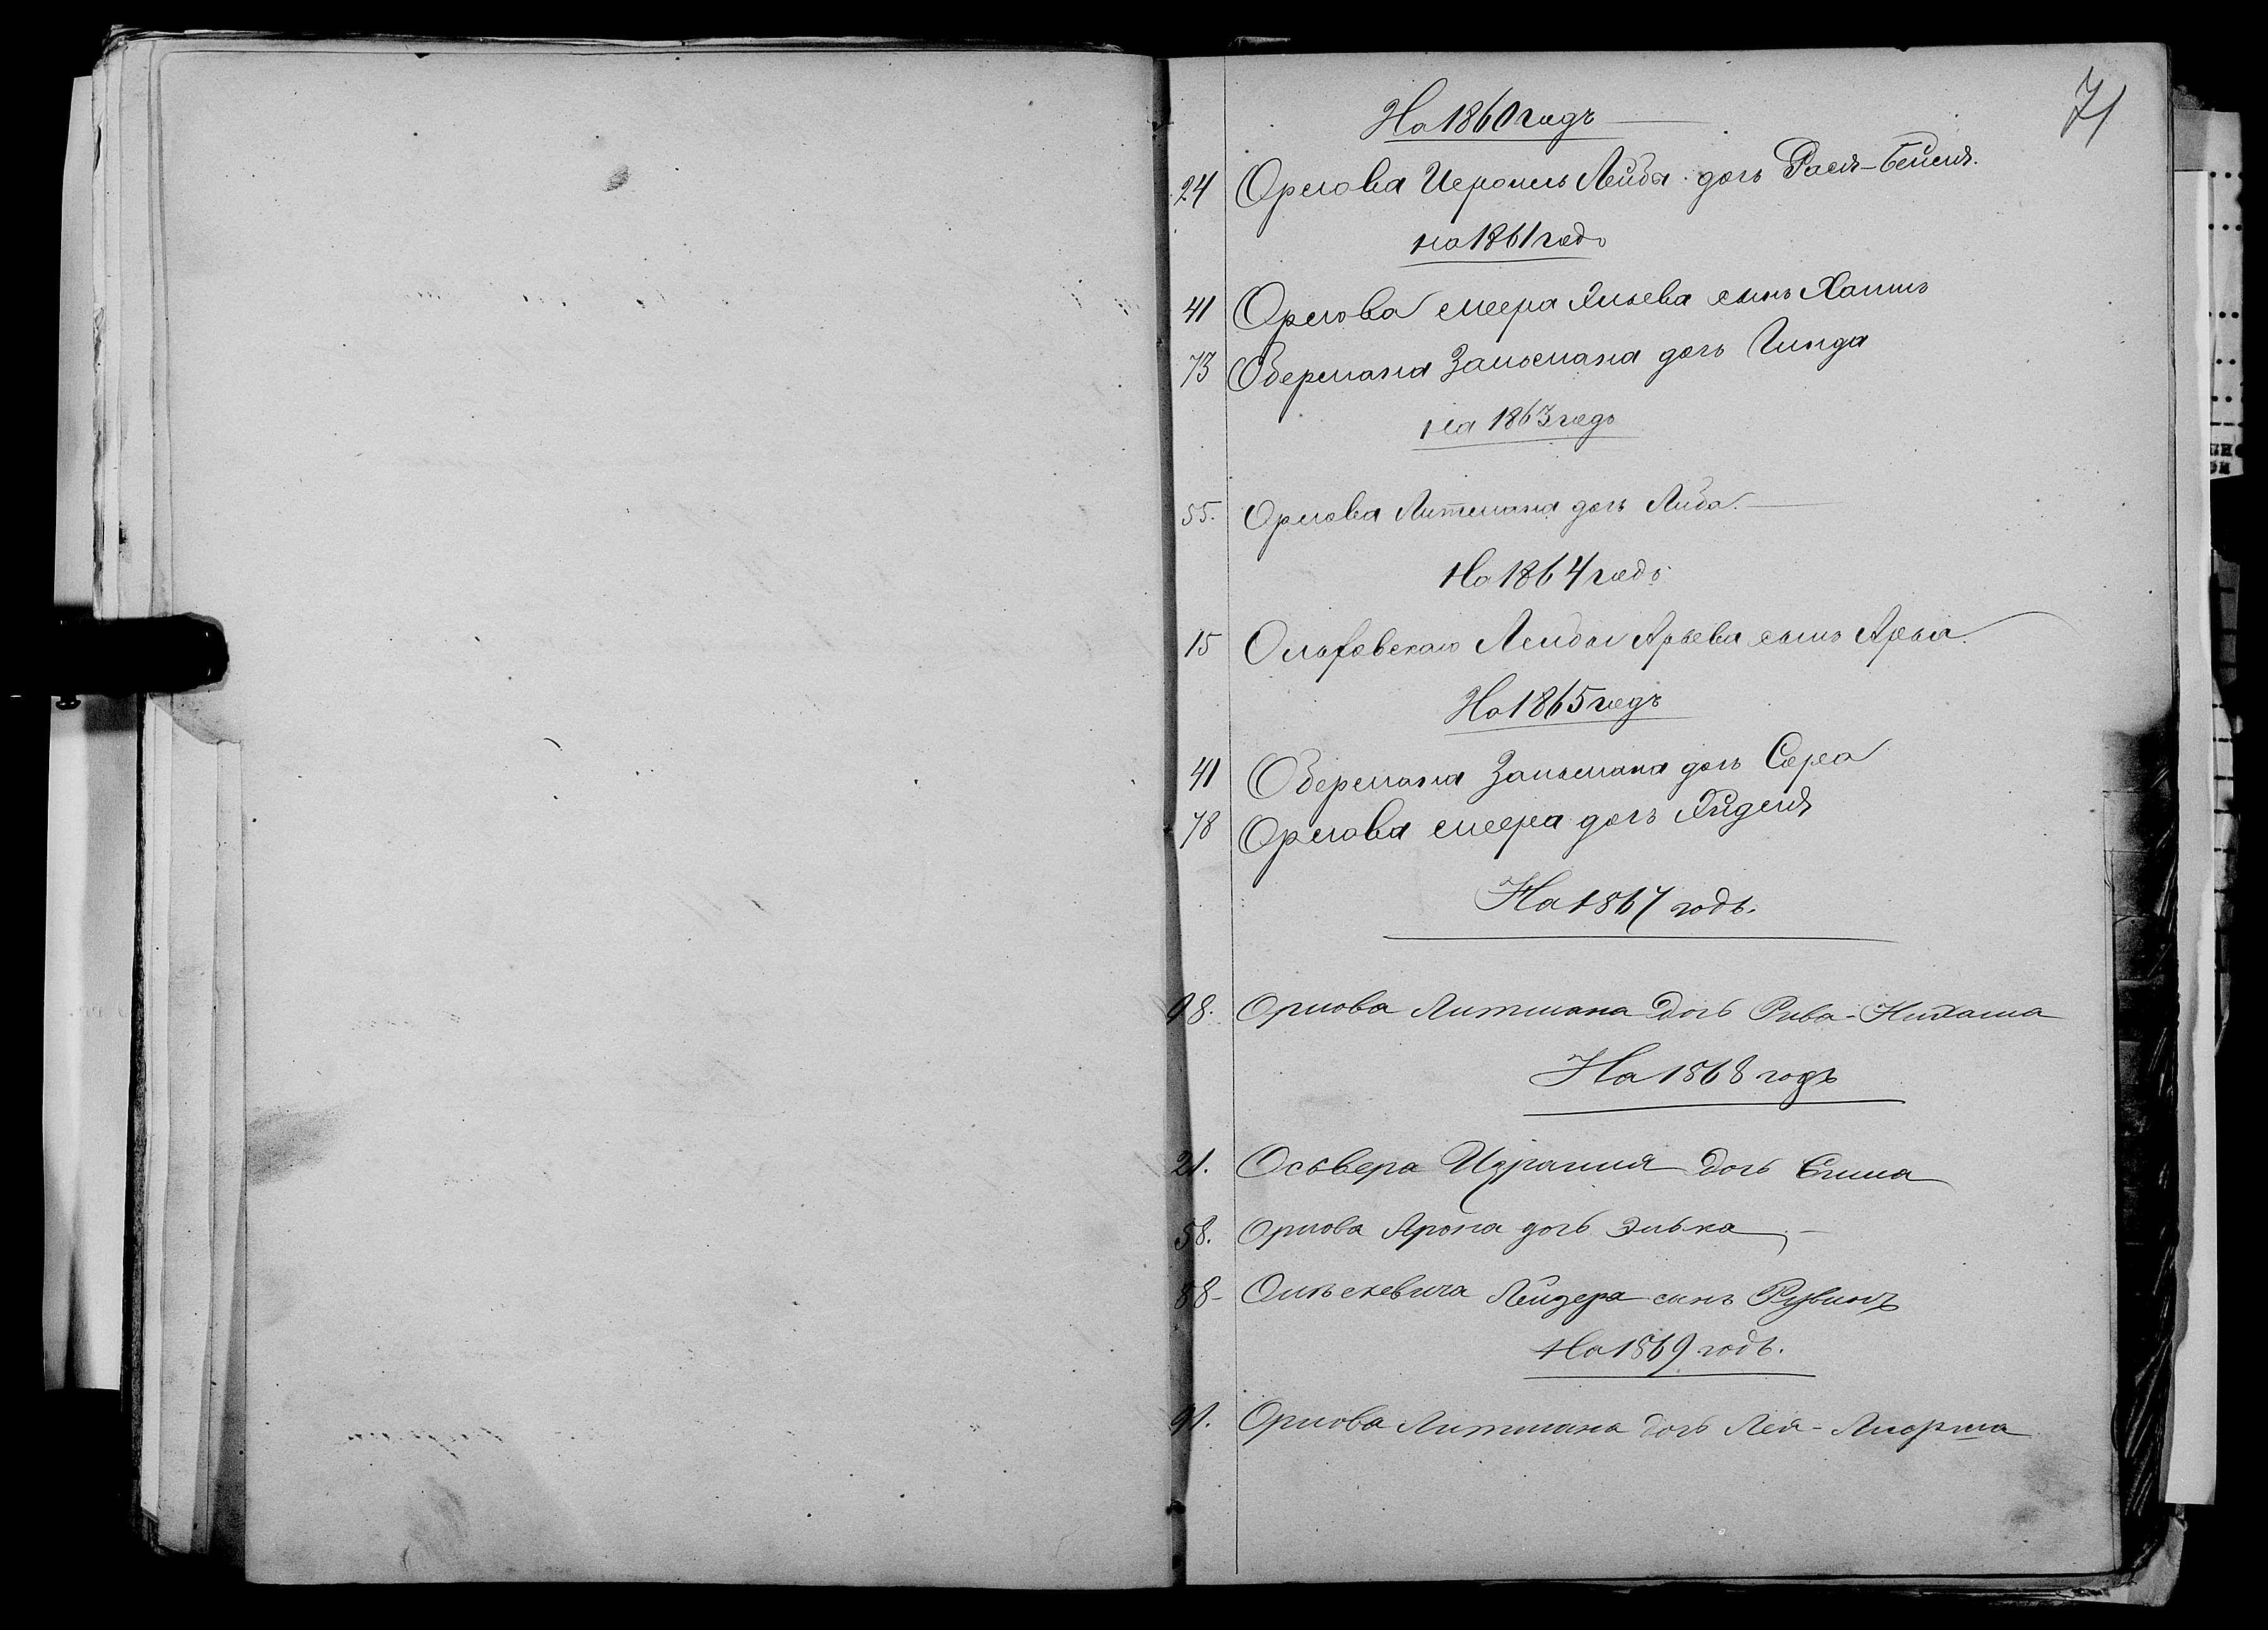 71
На 1860 годъ
24 Орлова Лейбы дочь Рася-Бейля.
на 1861 годъ
41 Орлова Меера сынъ Хаимъ
73 Обермана Зальмана дочь Гинда
на 1863 годъ
55. Орлова Литмана дочь Либа.
На 1864 годъ
15 Лейбы Арьева сынъ
На 1865 годъ
41 Обермана Зальмана дочь Сора
78 Орлова Меера дочь
На 1867 годъ.
98. Орлова Литмана дочь Рива-Нихама
На 1868 годъ
21. Осьвера Израиля дочь
58. Орлова Арона дочь Элька
88- Лейзера сынъ Рувинъ
На 1869 годъ.
91. Орлова Литмана дочь Лея-